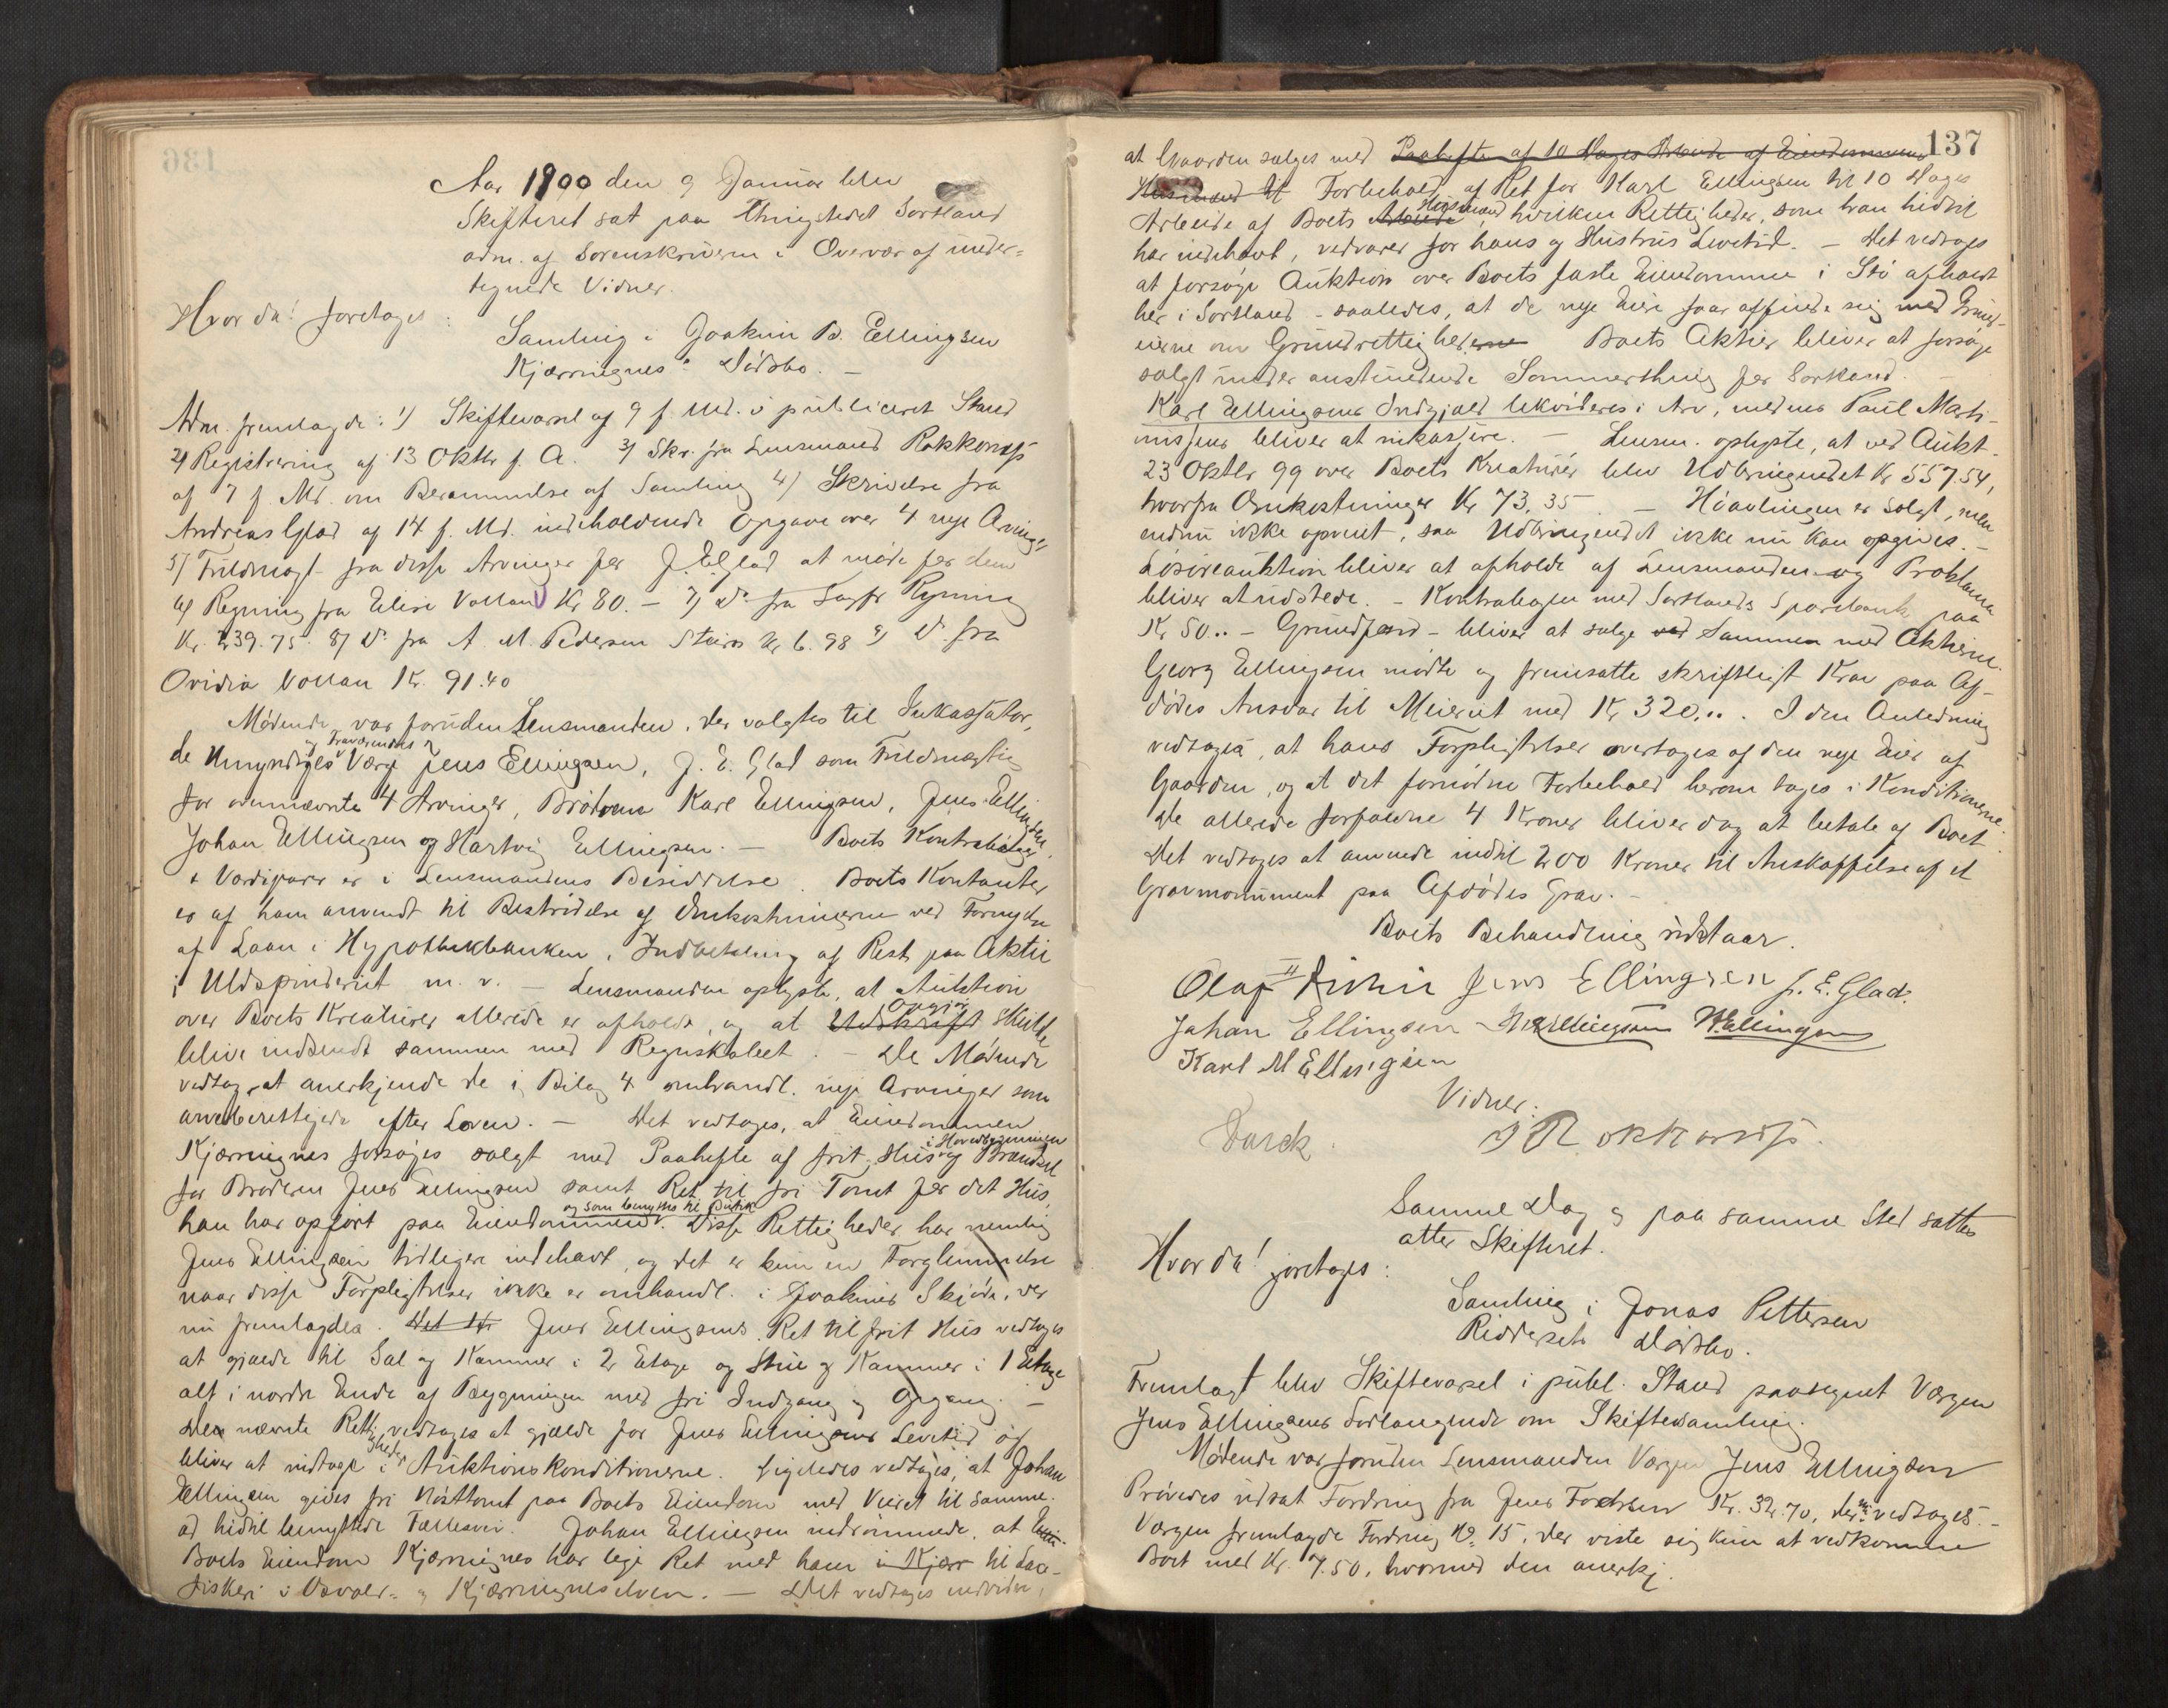 Aar 1900 den 9 Januar blev
Skifteret sat paa Thingstedet Sortland
adm. af Sorenskriveren i Overvær af under-
tegnede Vidner.
Hvorda! foretoges:
Samling i Joakim B. Ellingsen
Kjærringnes' Dødsbo. —
Adm. fremlagde: 1) Skiftevarsel af 9 f. Md. i publiceret Stand
2) Registrering af 13 Oktbr f. A. 3) Skr. fra Lensmand Rokkones
af 7 f. Md. om Berammelse af Samling 4) Skrivelse fra
Andreas Glad af 14 f. Md. indeholdende Opgave over 4 nye Arvinger
5) Fuldmagt fra disse Arvinger for J. E. Glad at møde for dem
6) Regning fra Elise Vollan Kr 80. — 7) Do fra Regning
Kr. 239.75. 8) Do fra A. M. Pedersen Kr 6.98 9) Do fra
Ovidia Vollan Kr. 91.40
Mødende var foruden Lensmanden, der valgtes til Inkassator,
de Umyndiges og Fraværendes Værge Jens Ellingsen, J. E. Glad som Fuldmægtig
for ovennævnte 4 Arvinger, Brødrene Karl Ellingsen, Jens Ellingsen,
Johan Ellingsen og Hartvig Ellingsen. — Boets Kontrabøger
& Værdipapir er i Lensmandens Besiddelse. Boets Kontanter
er af ham anvendt til Bestridelse af Omkostningerne ved Fornyelse
af Laan i Hypothekbanken, Indbetaling af Rest paa Aktie
i Uldspinderiet m. v. — Lensmanden oplyste, at Auktion
over Boets Kreaturer allerede er afholdt, og at Udskrift Opgjør skulde
blive indsendt sammen med Regnskabet. — De Mødende
vedtog at anerkjende de i Bilag 4 omhandl. nye Arvinger som
arveberettigede efter Loven. — Det vedtoges, at Eiendommen
Kjærringnes forsøges solgt med Paahefte af frit Hus i Hovedbygningen og Brændsel
for Broderen Jens Ellingsen samt Ret til fri Tomt for det Hus,
han har opført paa Eiendommen og som benyttes til Butik. Disse Rettigheder har nemlig
Jens Ellingsen tidligere indehavt, og det er kun en Forglemmelse
naar disse Forpligtelser ikke er omhandl. i Joakims Skjøde, der
nu fremlagdes. Det Jens Ellingsens Ret til frit Hus vedtoges
at gjælde til Sal og Kammer i 2 Etage og Stue og Kammer i 1 Etage
alt i nordre Ende af Bygningen med fri Indgang og Opgang. —
Den nævnte Rettigheder vedtoges at gjælde for Jens Ellingsens Levetid og
bliver at indtage i Auktionskonditionerne. Ligeledes vedtoges, at Johan
Ellingsen gives fri Nøsttomt paa Boets Eiendom med Veiret til samme
ad hidtil benyttede Fællesvei. Johan Ellingsen indrømmede, at
Boets Eiendom Kjærringnes har lige Ret med ham i Kjær til Laxe-
fiskeri i og Kjærringneselven. — Det vedtoges endvidere,
137
at Gaarden sælges med Paahefte af 10 Dages Arbeide af Eiendommens
Husmand til Forbehold af Ret for Karl Ellingsen til 10 Dages
Arbeide af Boets Arbeide Husmand, hvilken Rettigheder, som han hidtil
har indehavt, vedvarer for hans og Hustrus Levetid. — Det vedtoges
at forsøge Auktion over Boets faste Eiendomme i Stø afholdt
her i Sortland — saaledes, at de nye Eiere faar affinde sig med Grund-
eierne om Grundrettighederne Boets Aktier bliver at forsøge
solgt under anstundende Sommerthing for Sortland. —
Karl Ellingsens Indgjæld likvideres i Arv, medens Paul Marti-
nissens bliver at inkassere. — Lensm. oplyste, at ved Aukt.
23 Oktbr 99 over Boets Kreaturer blev Udbringendet Kr 557.54,
hvorfra Omkostninger Kr 73,35. — Høavlingen er solgt, men
endnu ikke opveiet, saa Udbringendet ikke nu kan opgives. —
Løsøreauktion bliver at afholde af Lensmanden og Proklama
bliver at udstede. — Kontrabogen med Sortlands Sparebank paa
Kr 50.. — Grundfond — bliver at sælge ved Sammen med Aktierne.
Georg Ellingsen mødte og fremsatte skriftligt Krav paa Af-
dødes Ansvar til Meieriet med Kr 320... I den Anledning
vedtoges, at hans Forpligtelser overtages af den nye Eier af
Gaarden, og at det fornødne Forbehold herom tages i Konditionerne.
De allerede forfaldne 4 Kroner bliver dog at betale af Boet.
Det vedtoges at anvende indtil 200 Kroner til Anskaffelse af et
Gravmonument paa Afdødes Grav. —
Boets Behandling udstaar.
Olaf Jens Ellingsen J. E. Glad.
Johan Ellingsen Ellingsen H. Ellingsen
Karl M Ellingsen
Vidner:
Darck. J Rokkones.
Samme Dag og paa samme Sted sattes
atter Skifteret.
Hvorda! foretoges:
Samling i Jonas Pettersen
Dødsbo.
Fremlagt blev Skiftevarsel i publ. Stand paategnet Værgen
Jens Ellingsens Forlangende om Skiftesamling.
Mødende var foruden Lensmanden Værgen Jens Ellingsen
Prøvedes udsat Fordring fra Jens Kr. 32.70, der nu vedtoges. —
Værgen fremlagde Fordring No 15, der viste sig kun at vedkomme
Boet med Kr. 7.50, hvormed den anerkj.